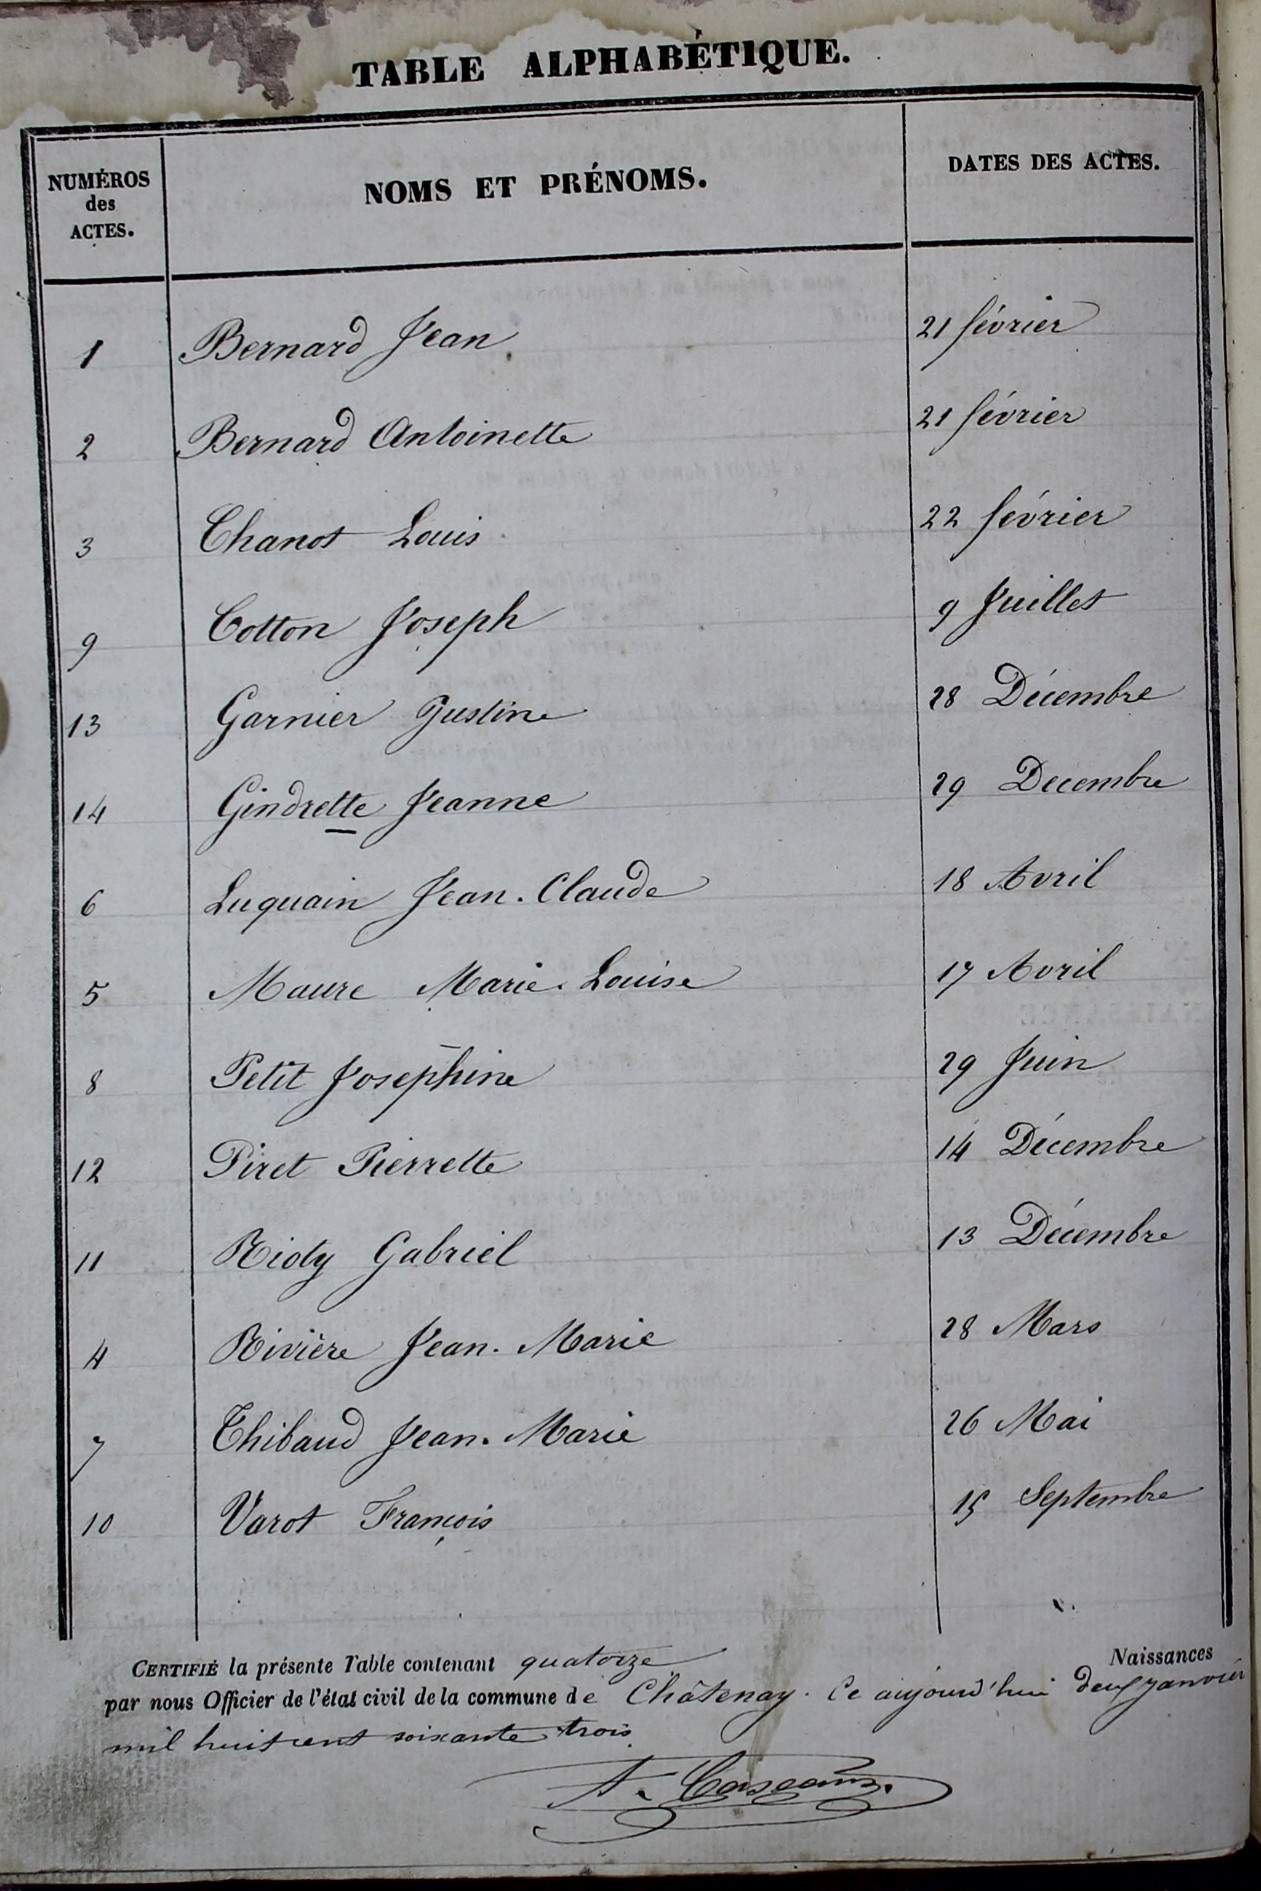 TABLE ALPHABÉTIQUE.
NUMÉROS des ACTES. NOMS ET PRÉNOMS. DATES DES ACTES.
1 Bernard Jean 21 février
2 Bernard Antoinette 21 février
3 Chanot Louis 22 février
9 Cotton Joseph 9 Juillet
13 Garnier Justine 28 Décembre
14 Gindrette Jeanne 29 Decembre
6 Luquain Jean. Claude 18 Avril
5 Maure Marie. Louise 17 Avril
8 Petit Joséphine 29 Juin
12 Piret Pierrette 14 Décembre
11 Rioty Gabriel 13 Décembre
4 Rivière Jean. Marie 28 Mars
7 Thibaud Jean. Marie 26 Mai
10 Varot François 15 Septembre
CERTIFIÉ la présente Table contenant quatorze Naissances
par nous Officier de l'état civil de la commune de Châtenay. Ce aujourd'hui deux janvier
mil huit cent soixante trois
A.